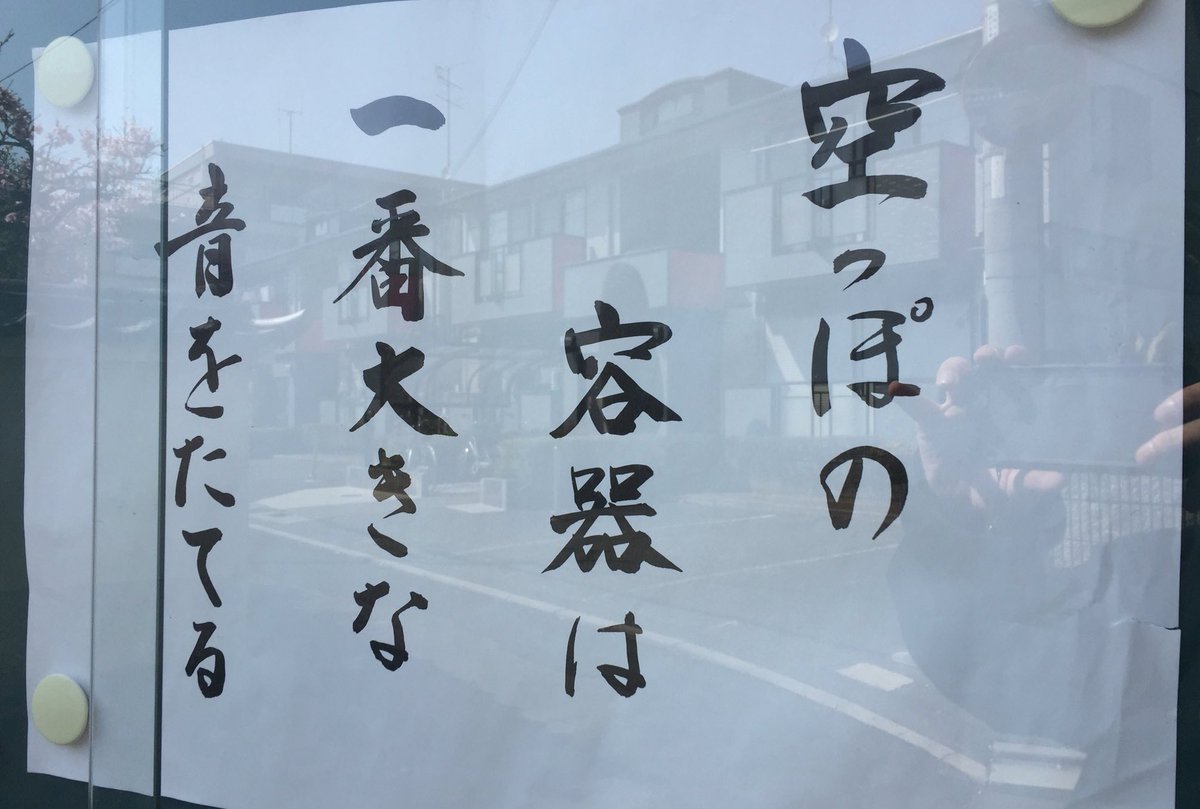 空っぽの
容器は
一番大きな
音をたてる